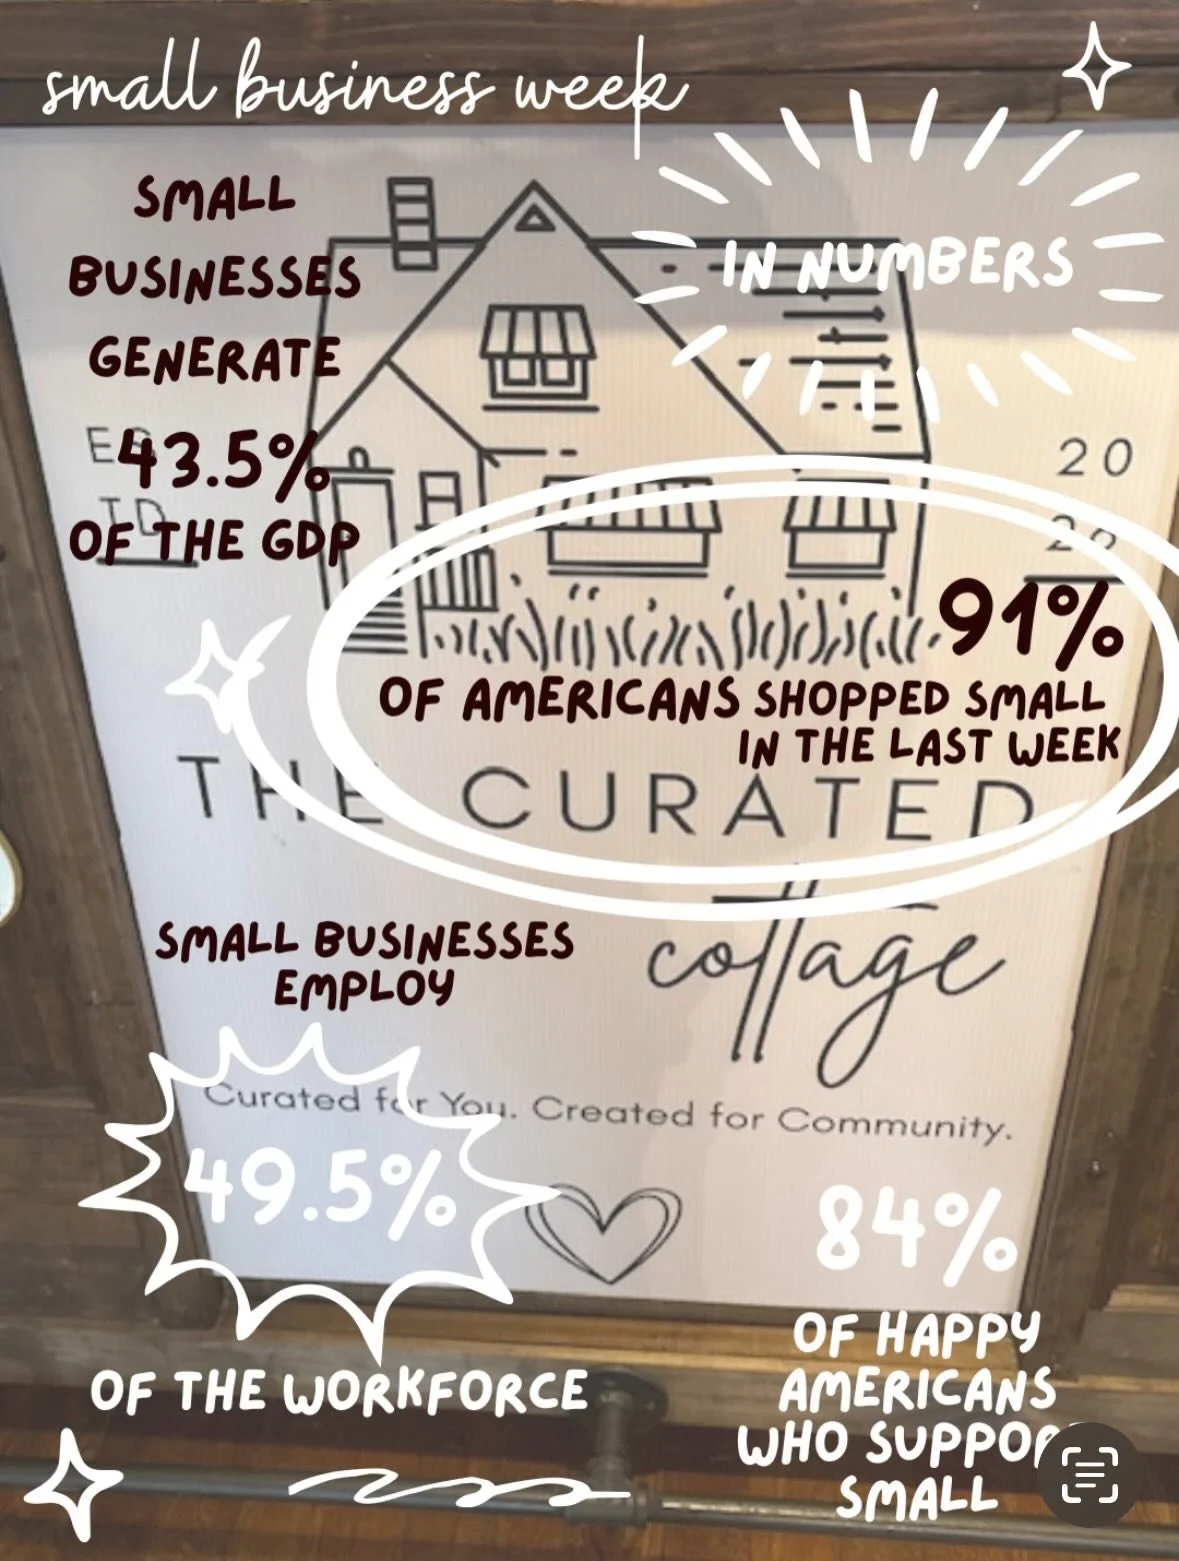 small business week
IN NUMBERS
SMALL
BUSINESSES
GENERATE
43.5%
OF THE GDP
ES
TD
20
20
91%
OF AMERICANS SHOPPED SMALL
IN THE LAST WEEK
THE CURATED
cottage
SMALL BUSINESSES
EMPLOY
Curated for You. Created for Community.
49.5%
OF THE WORKFORCE
84%
OF HAPPY
AMERICANS
WHO SUPPORT
SMALL